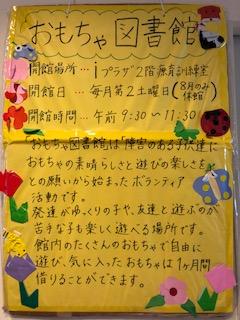 おもちゃ図書館
開館場所…iプラザ2階療育訓練室
開館日…毎月第2土曜日(8月のみ休館)
開館時間…午前9:30~11:30
おもちゃ図書館は「障害のある子供達に
おもちゃの素晴らしさと遊びの楽しさを」
との願いから始まったボランティア
活動です。
発達がゆっくりの子や、友達と遊ぶのが
苦手な子も楽しく遊べる場所です。
館内のたくさんのおもちゃで自由に
遊び、気に入ったおもちゃは1ヶ月間
借りることができます。